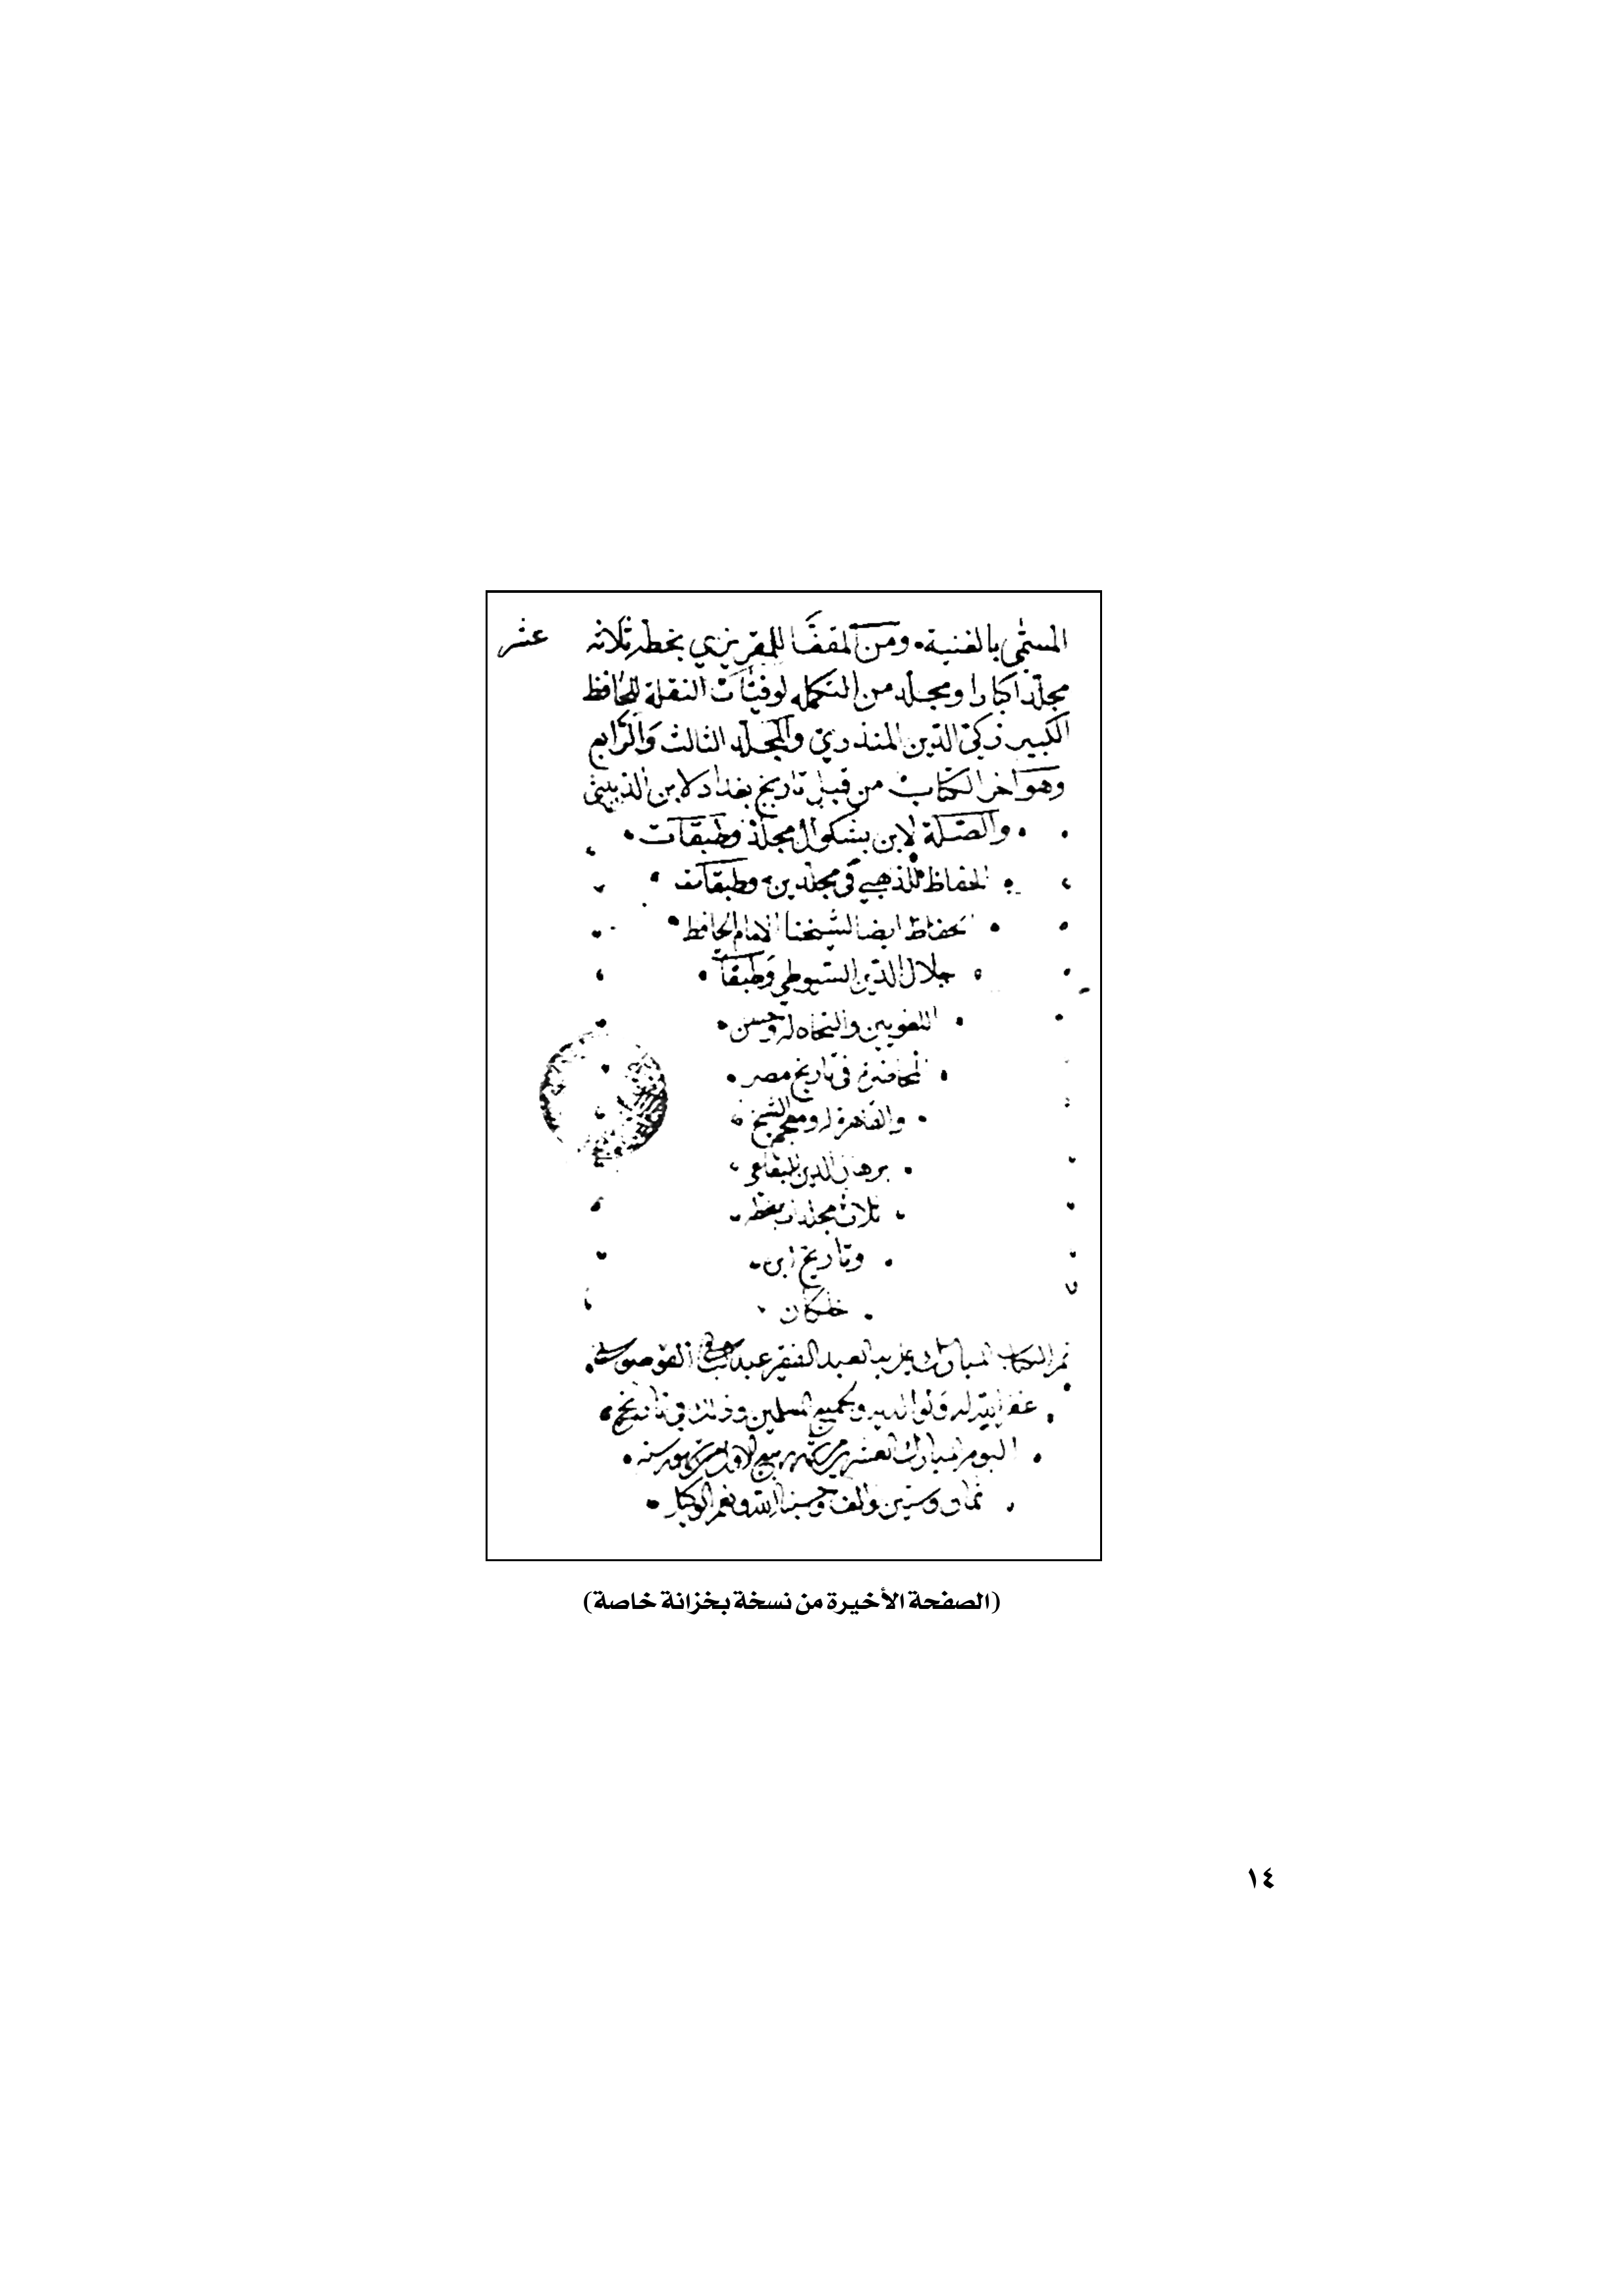 المسمى بالغنية. ومن المقفا للمقريزي بخطه ثلاثه عشر
مجلدا كبارا ومجلد من التكمله لوفيات النقلة للحافظ
الكبير زكي الدين المنذري والمجلد الثالث والرابع
وهو اخر الكتاب من قبل تاريخ بغداد لابن الدبيثي
والصلة لابن بشكوال مجلد وطبقات
الحفاظ للذهبي في مجلدين وطبقات
الحفاظ ايضا لشيخنا الامام الحافظ
جلال الدين السيوطي وطبقات
اللغويين والنحاه له وحسن
المحاضرة في تاريخ مصر
والقاهرة له ومعجم الشيخ
برهان الدين البقاعي
ثلاث مجلدات بخطه
وتاريخ ابن
خلكان
تم الكتاب المبارك على يد العبد الفقير
غفر الله له ولوالديه ولجميع المسلمين وذلك في تاريخ
اليوم المبارك العشر من شهر ربيع الاول من شهور سنه
ثمان وستين والف وحسبنا الله ونعم الوكيل
(الصفحة الأخيرة من نسخة بخزانة خاصة)
١٤